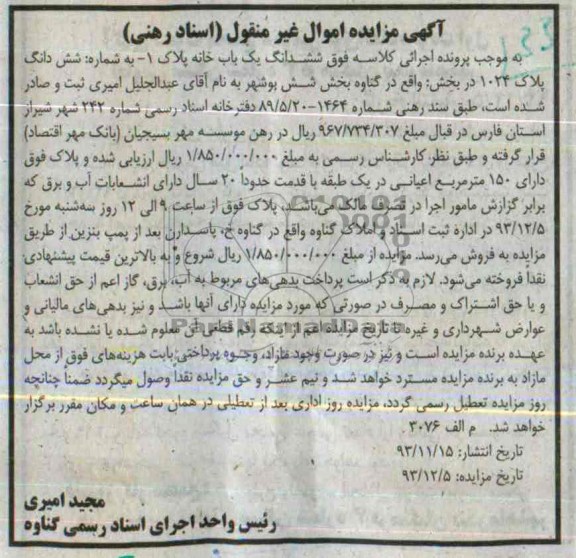 آگهی مزایده اموال غیر منقول (اسناد رهنی)
به موجب پرونده اجرائی کلاسه فوق ششدانگ یک باب خانه پلاک ۱- به شماره: شش دانگ
پلاک ۱۰۲۴ در بخش: واقع در گناوه بخش شش بوشهر به نام آقای عبدالجلیل امیری ثبت و صادر
شده است، طبق سند رهنی شماره ۱۴۶۴-۸۹/۵/۲۰ دفترخانه اسناد رسمی شماره ۲۴۲ شهر شیراز
استان فارس در قبال مبلغ ۹۶۷/۷۳۴/۳۰۷ ریال در رهن موسسه مهر بسیجیان (بانک مهر اقتصاد)
قرار گرفته و طبق نظر کارشناس رسمی به مبلغ ۱/۸۵۰/۰۰۰/۰۰۰ ریال ارزیابی شده و پلاک فوق
دارای ۱۵۰ مترمربع اعیانی در یک طبقه با قدمت حدوداً ۲۰ سال دارای انشعابات آب و برق که
برابر گزارش مامور اجرا در تصرف مالک می‌باشد. پلاک فوق از ساعت ۹ الی ۱۲ روز سه‌شنبه مورخ
۹۳/۱۲/۵ در اداره ثبت اسناد و املاک گناوه واقع در گناوه خ، پاسداران بعد از پمپ بنزین از طریق
مزایده به فروش می‌رسد. مزایده از مبلغ ۱/۸۵۰/۰۰۰/۰۰۰ ریال شروع و به بالاترین قیمت پیشنهادی
نقداً فروخته می‌شود. لازم به ذکر است پرداخت بدهی‌های مربوط به آب، برق، گاز اعم از حق انشعاب
و یا حق اشتراک و مصرف در صورتی که مورد مزایده دارای آنها باشد و نیز بدهی‌های مالیاتی و
عوارض شهرداری و غیره تا تاریخ مزایده اعم از اینکه رقم قطعی آن معلوم شده یا نشده باشد به
عهده برنده مزایده است و نیز در صورت وجود مازاد، وجوه پرداختی بابت هزینه‌های فوق از محل
مازاد به برنده مزایده مسترد خواهد شد و نیم عشر و حق مزایده نقداً وصول میگردد ضمناً چنانچه
روز مزایده تعطیل رسمی گردد، مزایده روز اداری بعد از تعطیلی در همان ساعت و مکان مقرر برگزار
خواهد شد. م الف ۳۰۷۶
تاریخ انتشار: ۹۳/۱۱/۱۵
تاریخ مزایده: ۹۳/۱۲/۵
مجید امیری
رئیس واحد اجرای اسناد رسمی گناوه